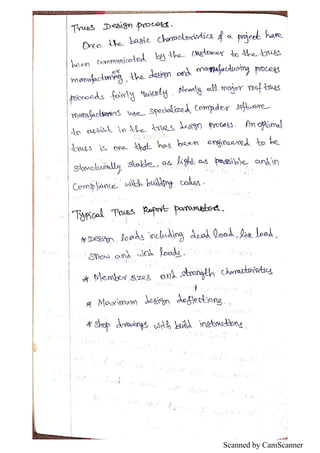 Truss Design process.
Once the basic characteristics of a project have
been communicated by the customer to the truss
manufacturor, the design and manufacturing process
proceeds fairly quickly. Nearly all major roof truss
manufacturers use specialized computer software
to assist in the truss design process. An optimal
truss is one that has been engineered to be
structurally stable, as light as possible and in
Compliance with building codes.
Typical Truss Report parameters.
* Design loads including dead load, live load,
snow and wind loads.
* Member sizes and strength characteristics
* Maximum design deflections.
* Shop drawings with build instructions
Scanned by CamScanner